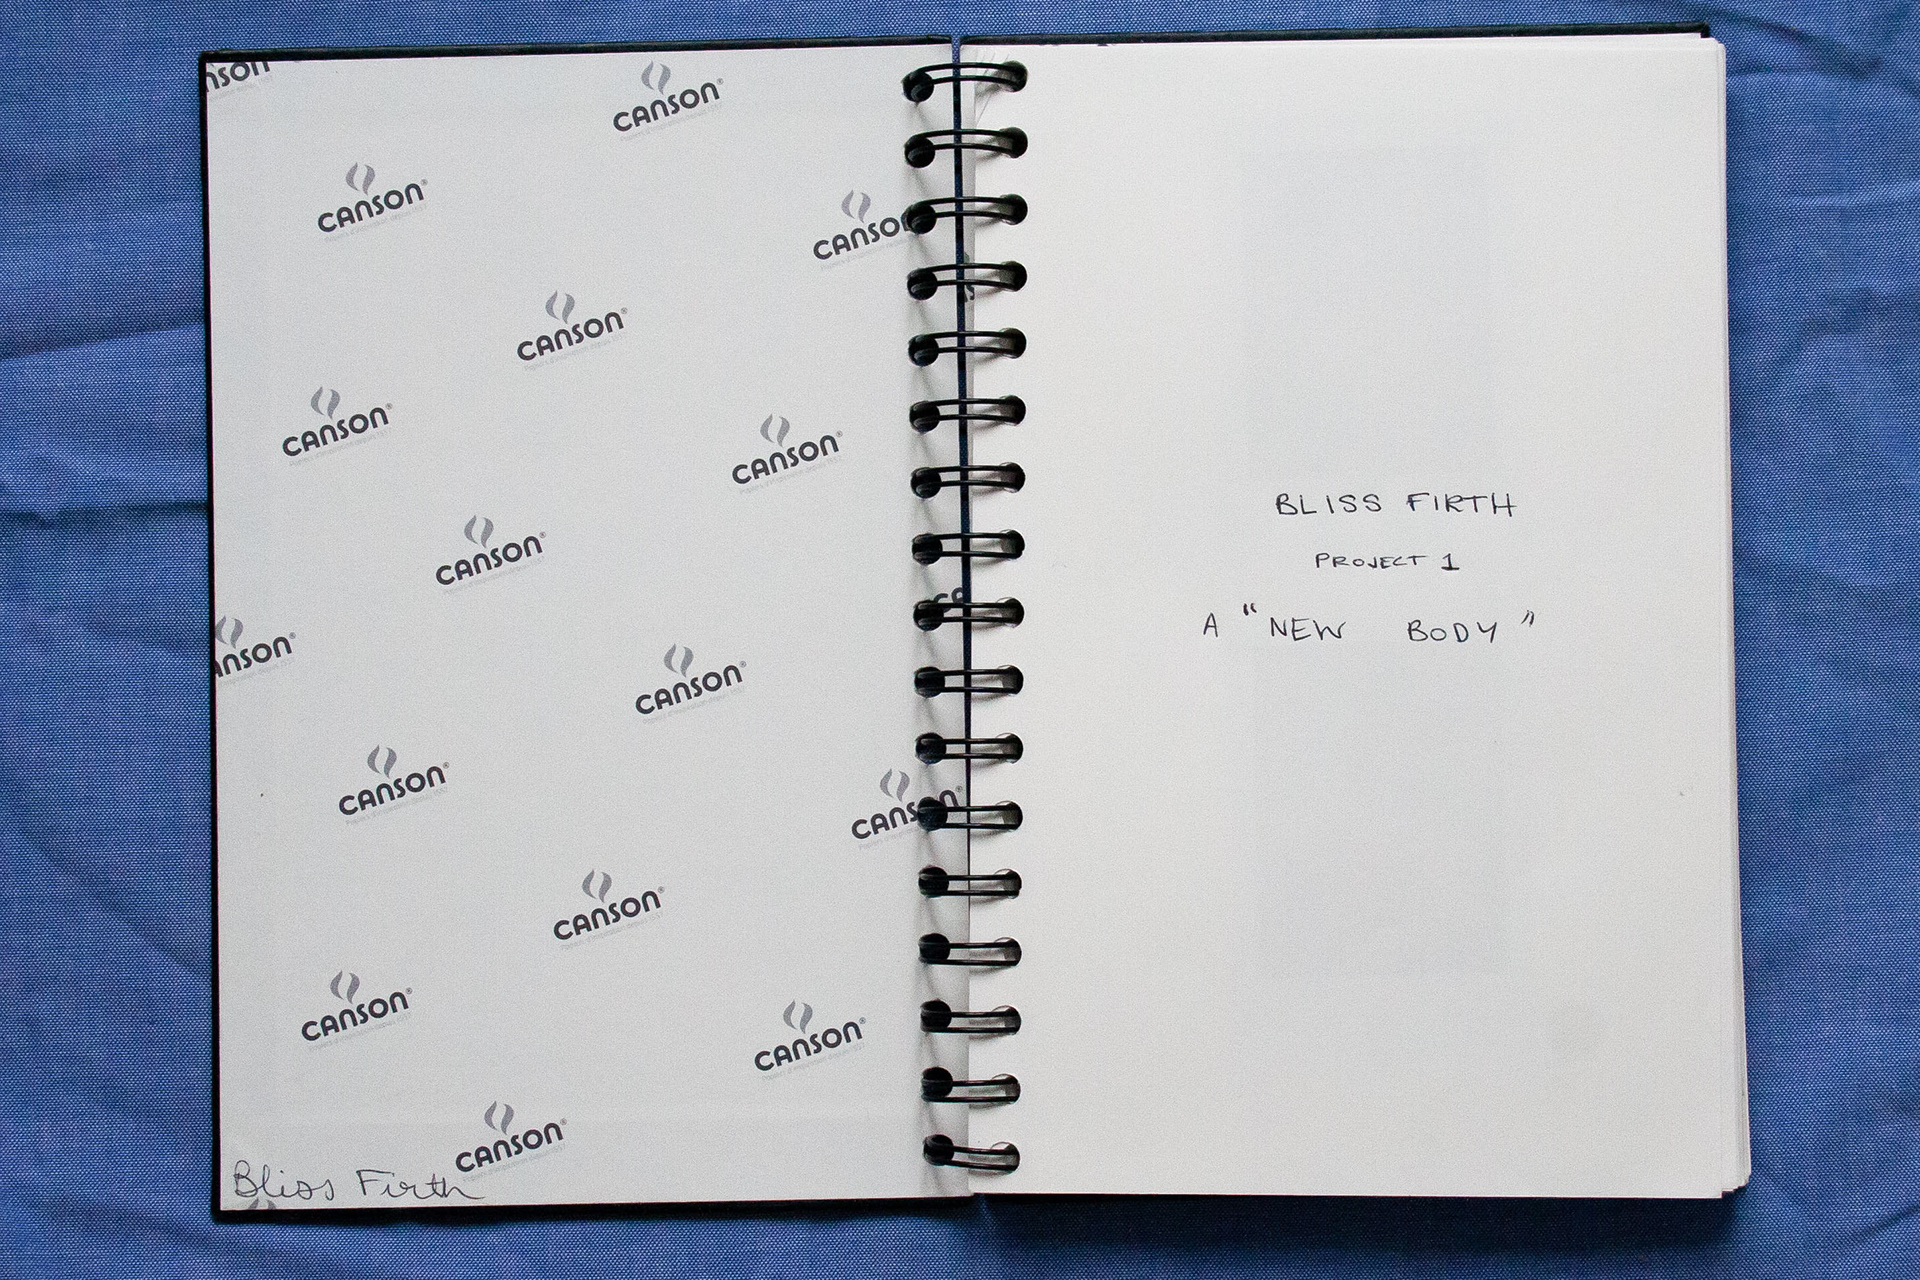 nson
CANSON®
CANSON®
CANSO
CANSON®
CANSON®
CANSON®
CANSON®
ANSON®
CANSON®
CANSON®
CANSON®
CANSON®
CANSON®
CANSON®
CANSON®
Bliss Firth
BLISS FIRTH
PROJECT 1
A "NEW BODY"